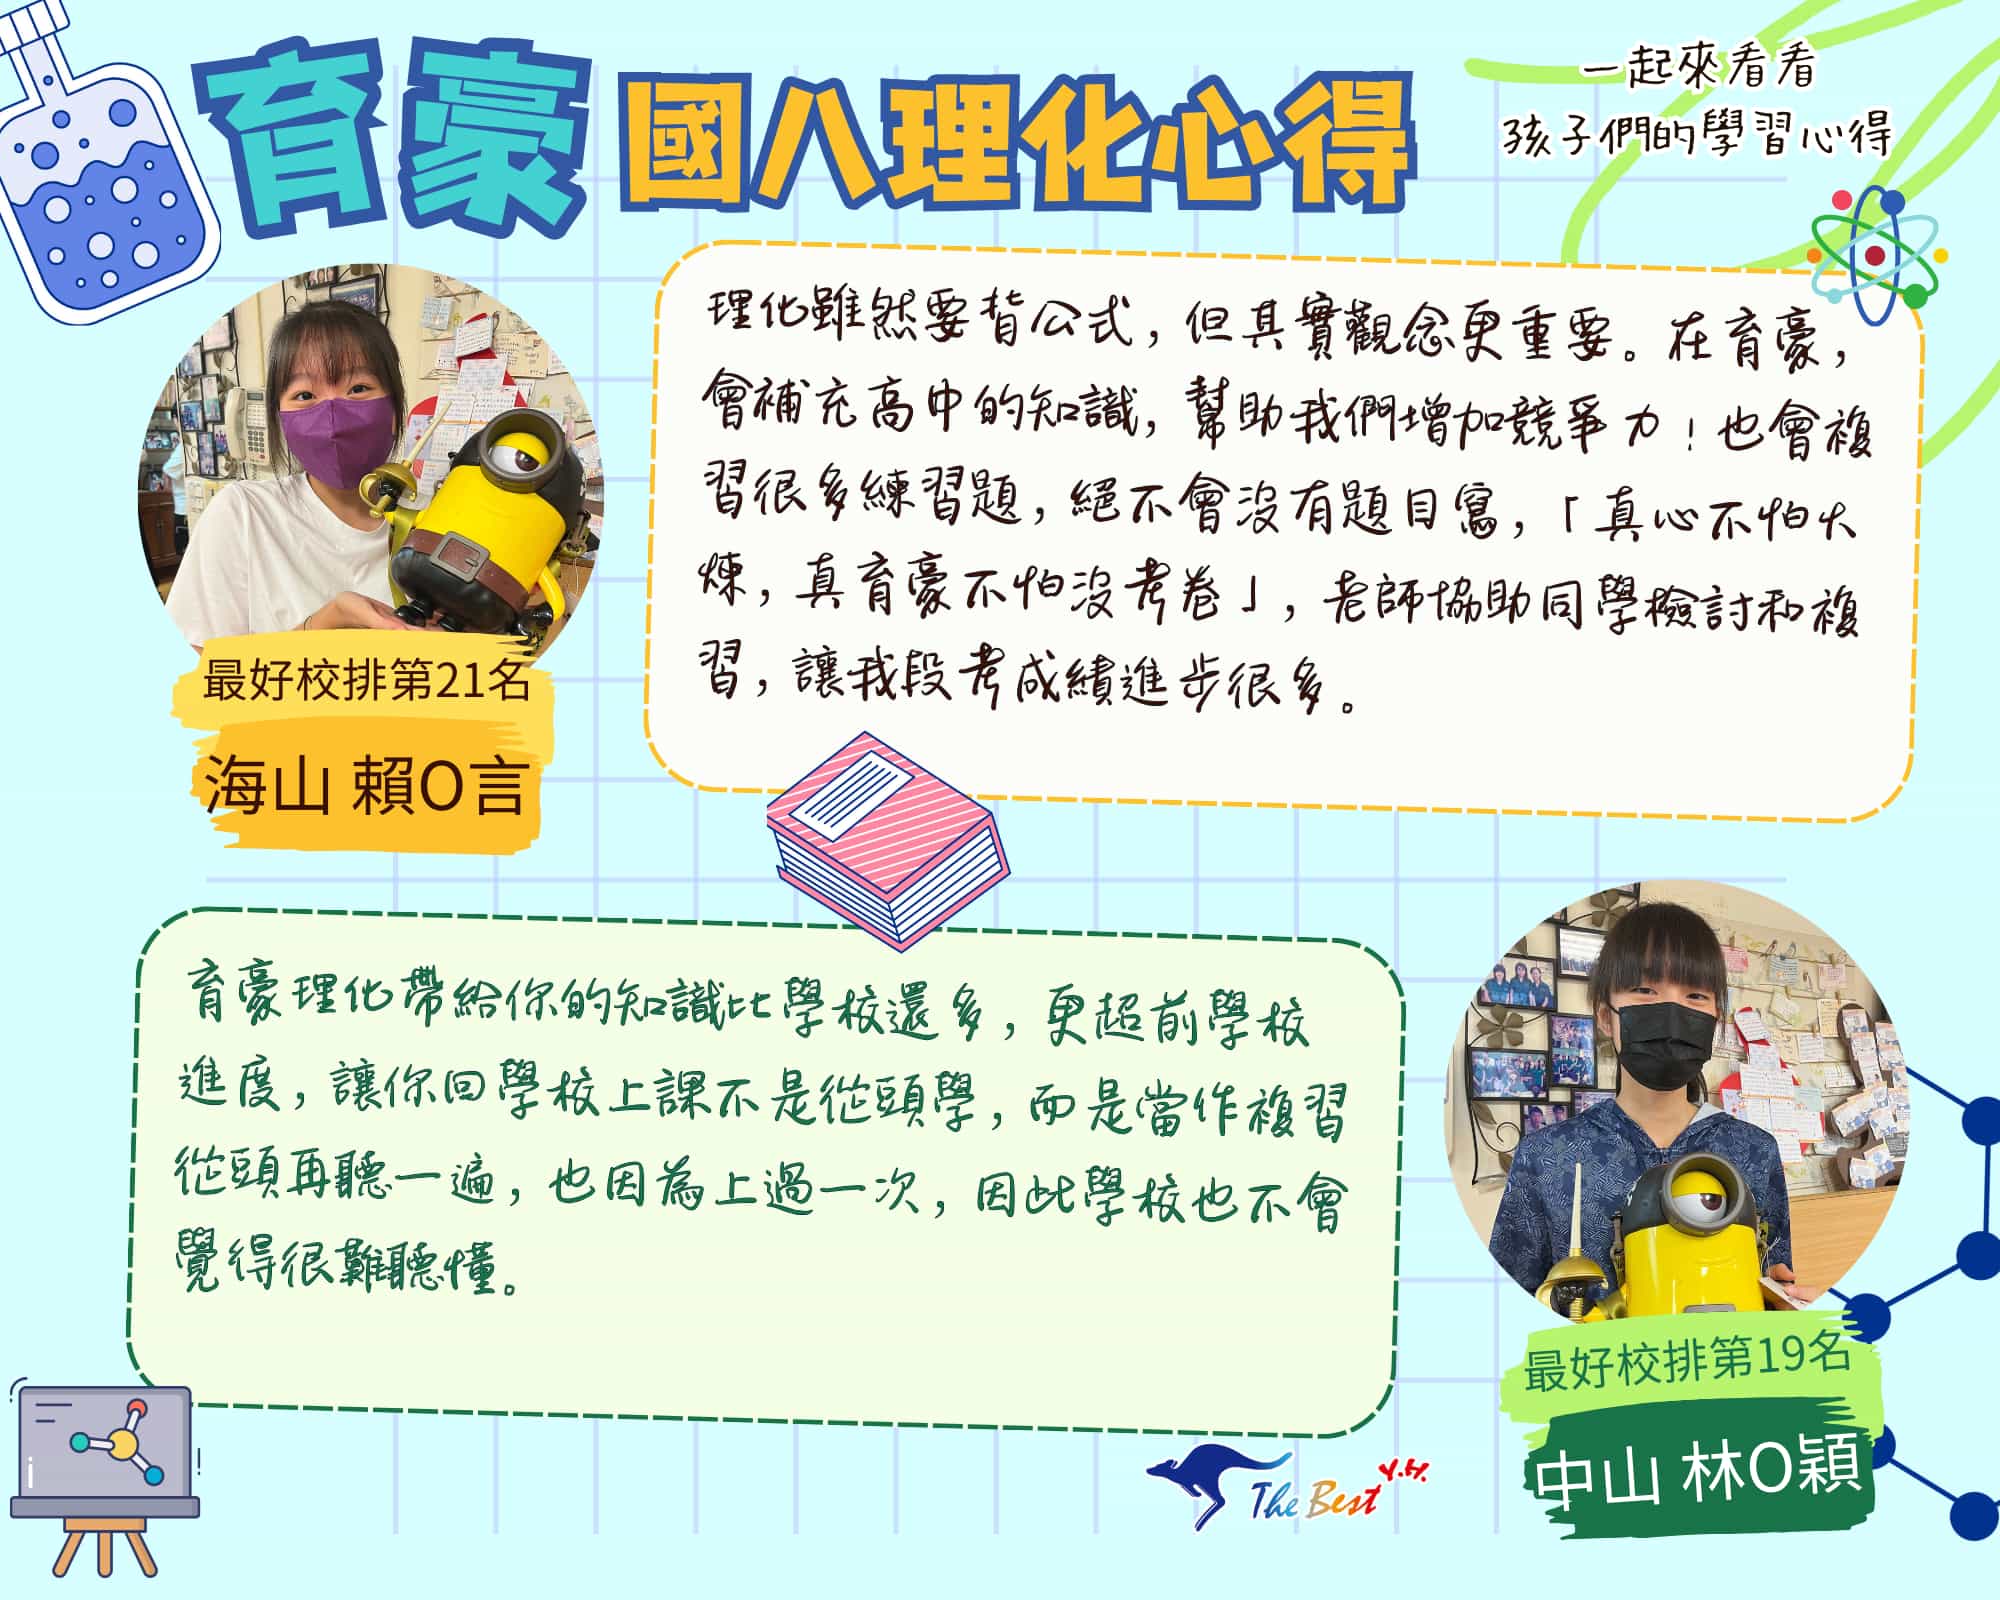 育豪 國八理化心得
一起來看看
孩子們的學習心得
理化雖然要背公式，但其實觀念更重要。在育豪，
會補充高中的知識，幫助我們增加競爭力！也會複
習很多練習題，絕不會沒有題目寫，「真心不怕火
煉，真育豪不怕沒考卷」，老師協助同學檢討和複
習，讓我段考成績進步很多。
最好校排第21名
海山 賴O言
育豪理化帶給你的知識比學校還多，更超前學校
進度，讓你回學校上課不是從頭學，而是當作複習
從頭再聽一遍，也因為上過一次，因此學校也不會
覺得很難聽懂。
最好校排第19名
中山 林O穎
The Best Y.H.